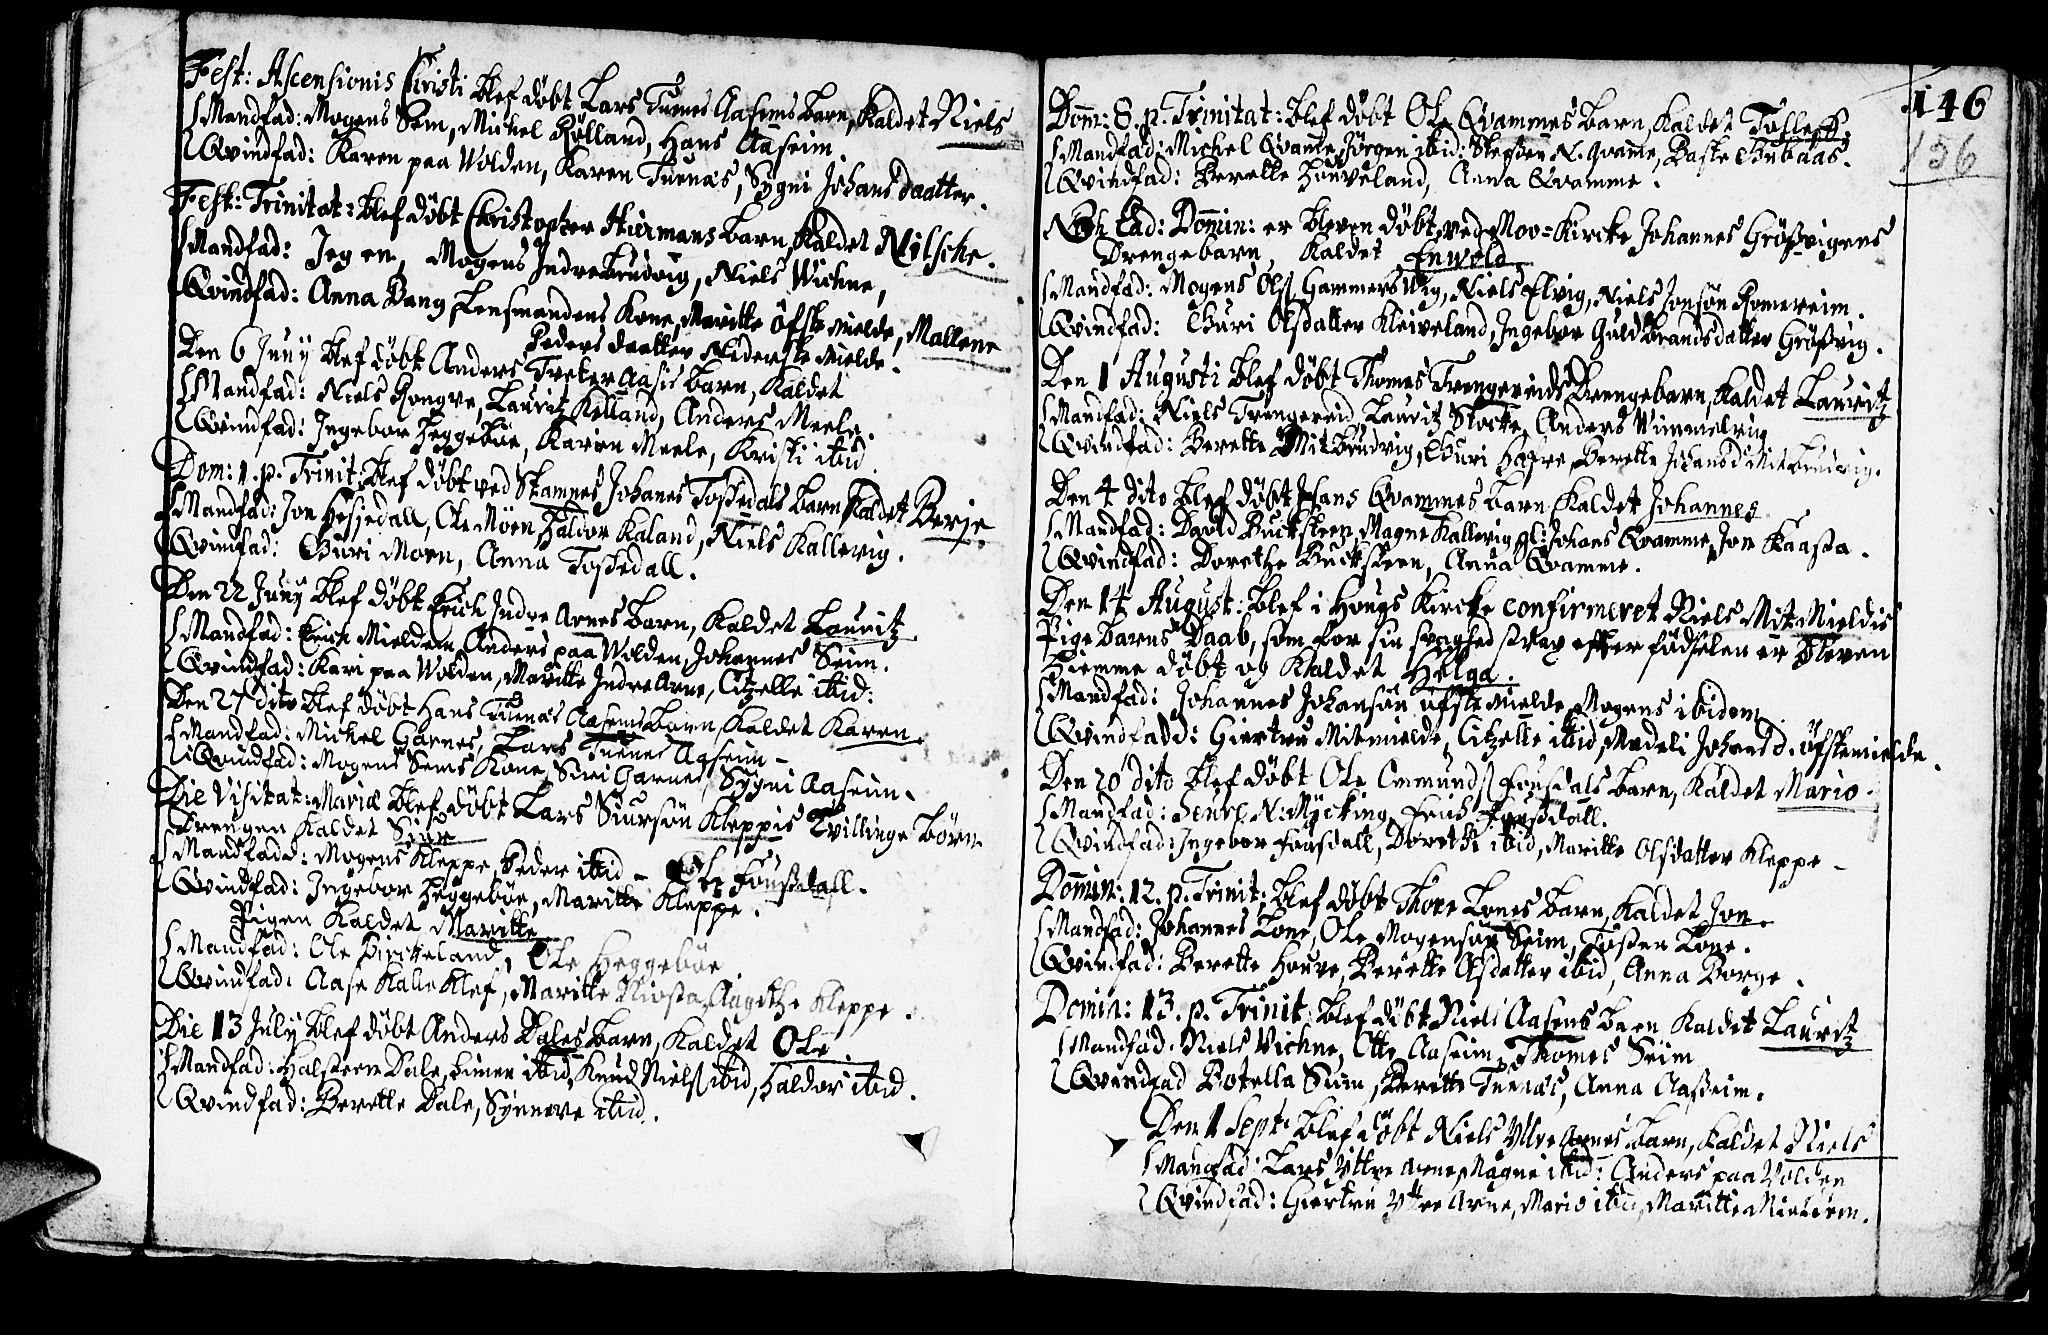 Fest: Ascensionis Christi blef döbt Lars Tuenes Aasems barn, kaldet Niels
Mandfad: Mogens Sem, Mickel Rölland, Hans Aaseim.
Qvindfad: Karen paa Wolden, Karen Tuenas, Sygni Johans daatter.
Fest: Trinitat: blef döbt Christopher Hiermans barn, kaldet Nilsche.
Mandfad: Jeg en, Mogens Indrebrudvig, Niels Wichne,
Qvindfad: Anna Bang Lensmandens Kone, Maritte öfste mielde, Mallene
Peders daatter Nederste mielde.
Den 6 Junÿ blef döbt Anders Tveter Aasis barn, Kaldet
Mandfad: Niels Rongve, Lauritz Kolland, Anders Meele.
Qvindfad: Ingebor Heggeböe, Karien Meele, Kristi ibid
Dom: 1. p. Trinit: blef döbt ved Stamnes Johanes Tossedals barn Kaldet Berje
Mandfad: Jon Hesjedall, Ole Möen Haldor Kaland, Niels Kallevig.
Qvindfad: Guri Moen, Anna Tossedall.
Den 22 Junÿ blef döbt Erich Indre Arnes barn, kaldet Lauritz
Mandfad: Erich Mieldem Anders paa Wolden, Johannes Seim.
Qvindfad: Kari paa Wolden, Maritte Indre Arne, Citzelle ibid:
Den 27 dito blef döbt Hans Tuenas Aasems barn, kaldet Karen.
Mandfad: Mickel Garnes, Lars Tuenes Aaseim -
Qvindfad: Mogens Sems Kone, Siri Garnes, Sygni Aaseim.
Die Visitat: Mariæ blef döbt Lars Siursön Kleppis Tvillinge börn
Drengen kaldet Siur
Mandfadd: Mogens Kleppe, Peder ibid - Ole Foussdall.
Qvindfad: Ingebor Heggeböe, Maritte Kleppe.
Pigen Kaldet Maritte
Mandfad: Ole Birckeland, Ole Heggeböe
Qvindfad: Aase Kalle Klef, Maritte Niosta, Aagethe Kleppe.
Die 13 Julÿ blef döbt Anders Dales barn, kaldet Ole.
Mandfad: Halsteen Dale, Einer ibid, Knud Niels ibid, Haldor ibid.
Qvindfad: Berette Dale, Synneve ibid.
146
156
Dom: 8. p. Trinitat: blef döbt Ole Qvammes barn, kaldet Tolleff.
Mandfad: Michel Qvame, Jörgen ibid: Steffen N. Qvame, Baste Gubaas.
Qvindfad: Berette Houveland, Anna Qvamme.
Noch ead: Domin: er bleven döbt ved Moo=Kircke Johannes Grössvigens
Drengebarn, kaldet Enwold
Mandfad: Mogens Ols Hammersvig, Niels Elvig, Niels Jonsön Romereim.
Qvindfad: Guri Olsdatter Kleiveland, Ingebor Guldbrandsdatter Grössvig.
Den 1 Augusti blef döbt Thomes Trengereids Drengebarn, kaldet Lauritz
Mandfad: Niels Trengereid, Lauritz Stocke, Anders Wimmelvig
Qvindfad: Berette Mitbrudvig, Guri Hafre, Berette Johansd Mitbrudvig.
Den 4 dito blef döbt Hans Qvammes barn kaldet Johannes
Mandfad: David Bucksteen, Magne Kallevig, gl: Johans Qvamme, Jon Kaassa.
Qvindfad: Dorethe Bucksteen, Anna Qvamme.
Den 14 August: blef i Hougs Kircke confirmeret Niels Mit Mieldis
Pige barns Daab, som for sin svaghed strax efter födselen er bleven
Hiemme döbt og kaldet Helga.
Mandfad: Johannes Johansön öfste mielde, Mogens ibidem
Qvindfadd: Giertru Mitmielde, Citzelle ibid, Madeli Johans d. öfstemielde.
Den 20 dito blef döbt Ole Enmunds Fousdals barn, kaldet Mario.
Mandfad: Henr. N. Mÿcking, Erich Foussdall.
Qvindfad: Ingebor Fousdall, Dorethe ibid, Maritte Olsdatter Kleppe -
Domin: 12. p. Trinit: blef döbt Thore Lones barn, kaldet Jon
Mandfad: Johannes Lone, Ole Mogensön Seim, Tosten Lone.
Qvindfad: Berette Houve, Berette Asdatter ibid, Anna Borge.
Domin: 13. p. Trinit. blef döbt Niels Aasens barn kaldet Lauritz
Mandfad. Niels Vichne, Otte Aaseim, Thomes Seim
Qvindfad Botella Siim, Berette Tuenas, Anna Aasseim.
Den 1 Sept: blef döbt Niels Yttre Arnes barn, kaldet Niels
Mandfad: Lars Yttre Arne, Magne ibid: Anders paa Volden
Qvindfad: Giertru Yttre Arne, Mario ibid, Maritte Mieldem.